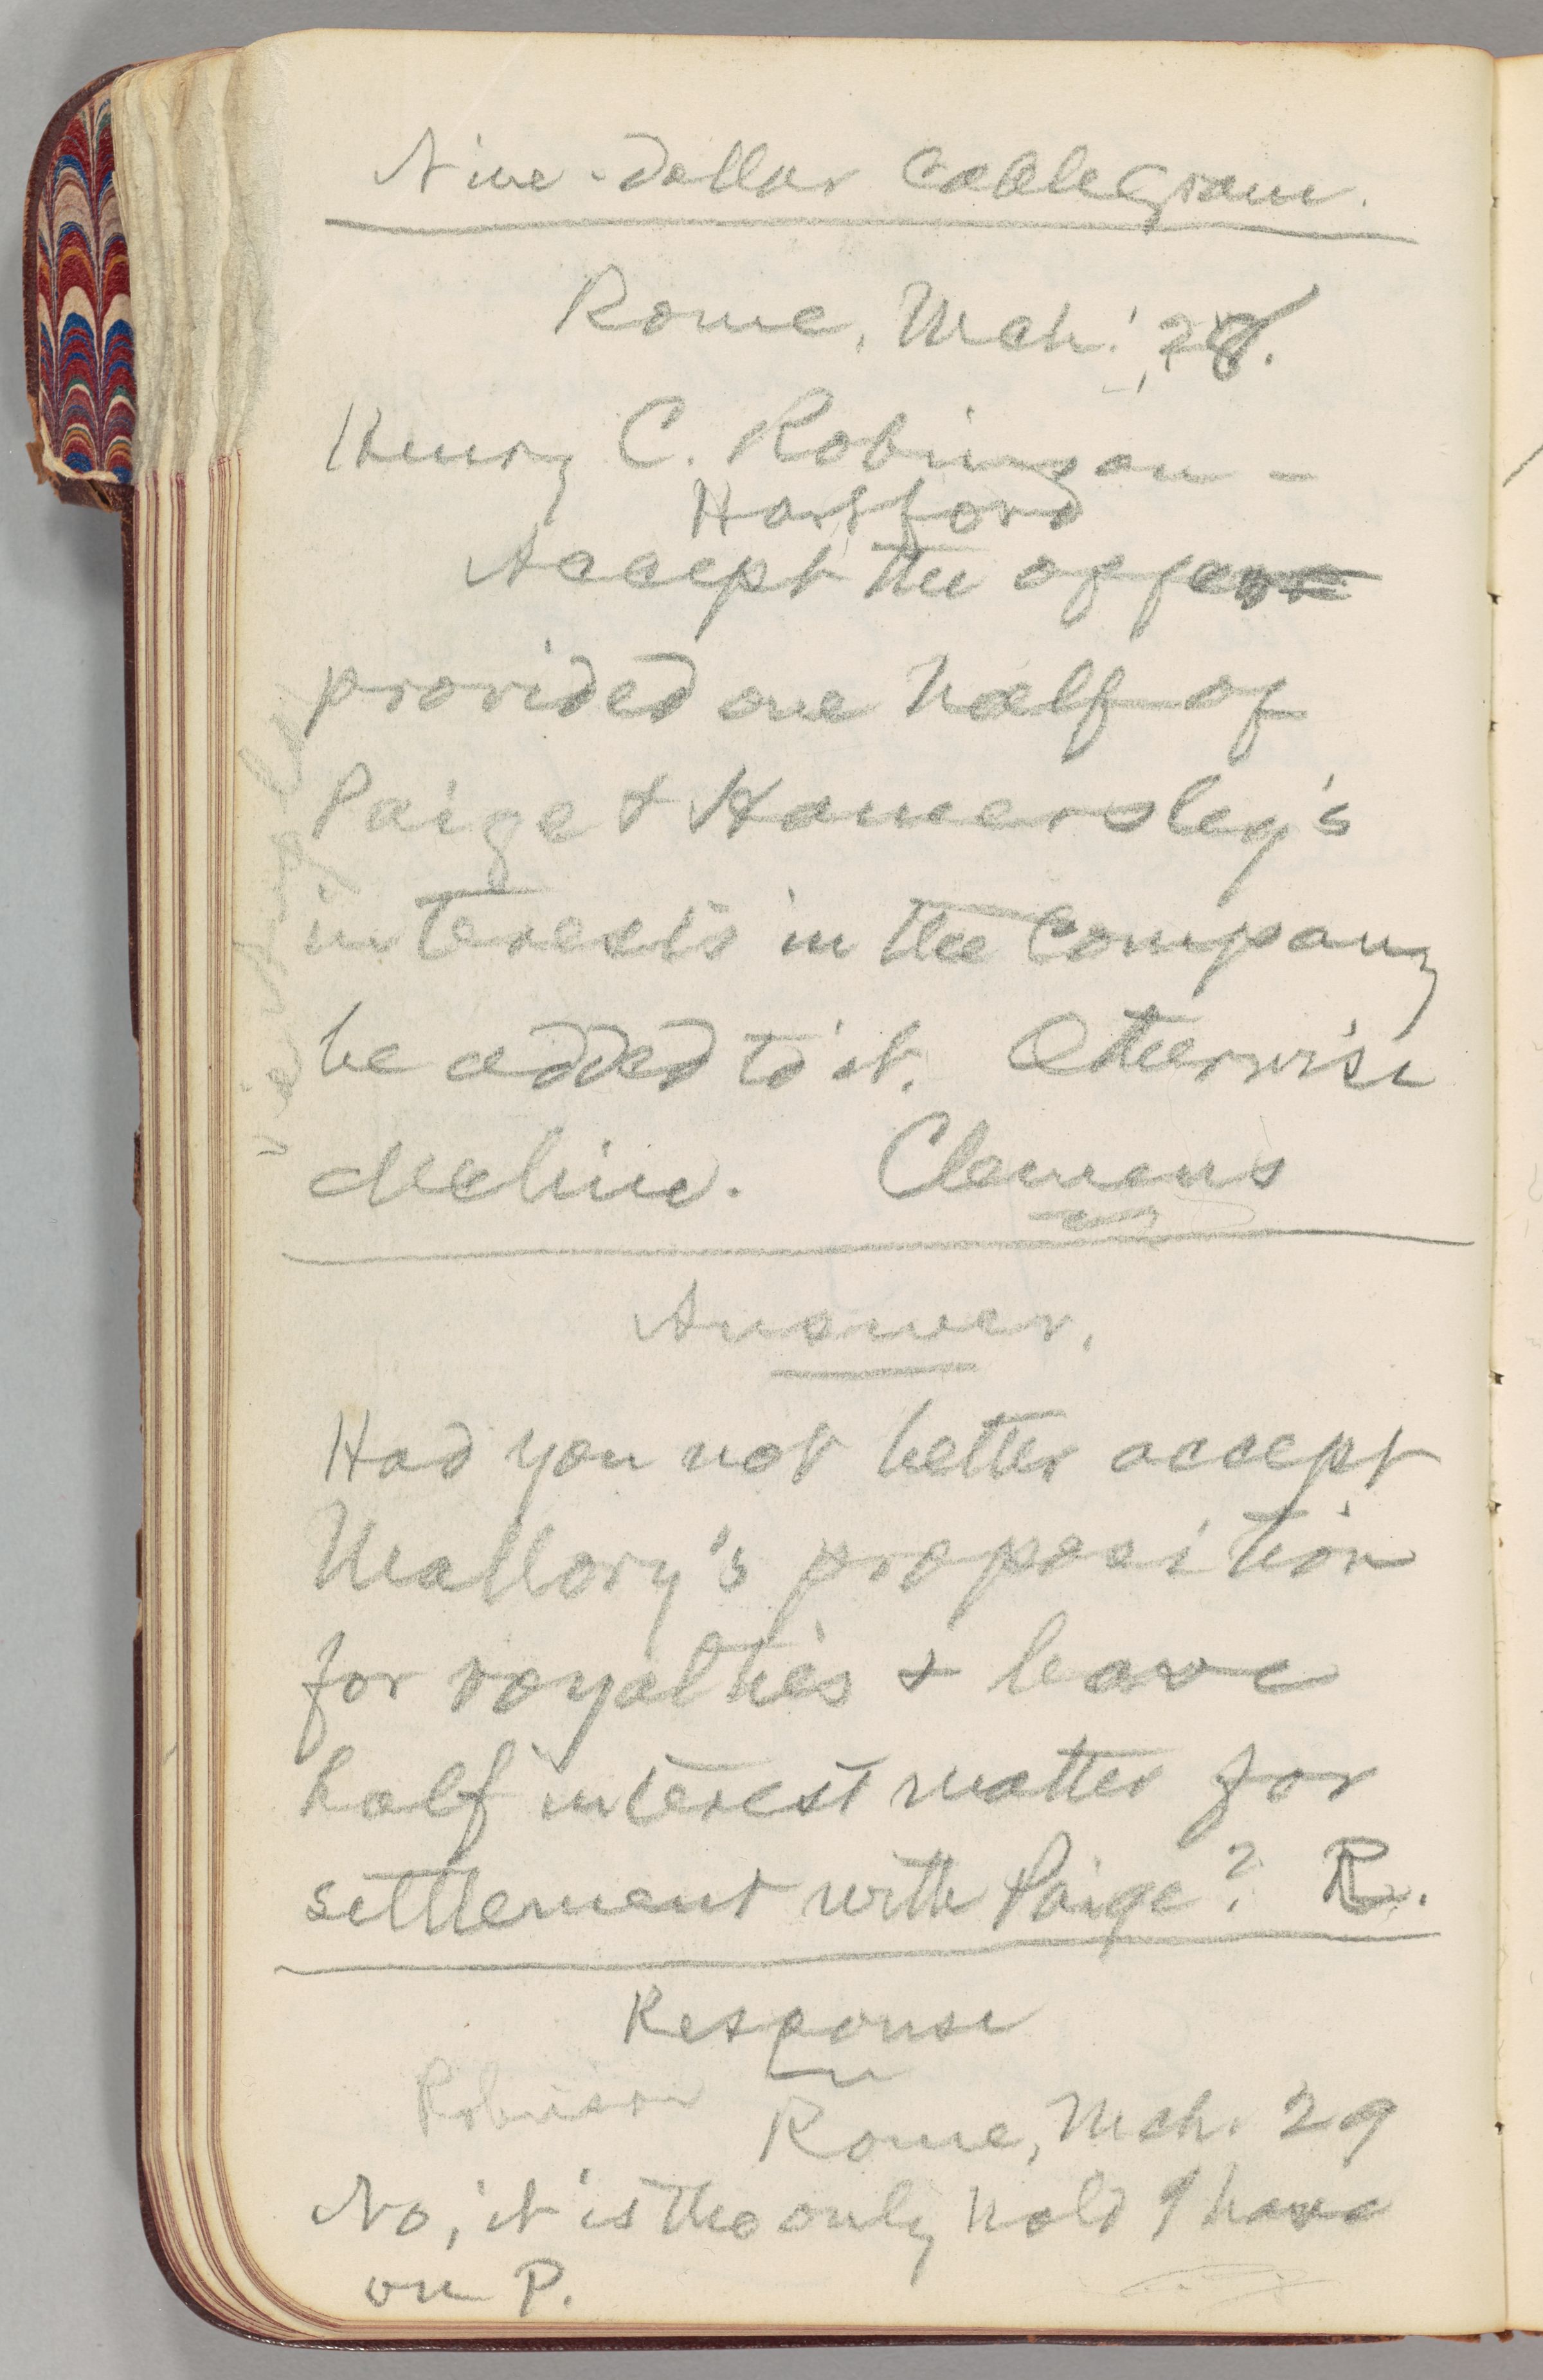 Nine-dollar cablegram.
Rome, Mch. 28.
Henry C. Robinson –
Hartford
Accept the offer
provided one half of
Paige & Hamersley's
interests in the Company
be added to it. Otherwise
decline. Clemens
Answer.
Had you not better accept
Mallory's proposition
for royalties & leave
half interest matter for
settlement with Paige? R.
Response
Robinson
Rome, Mch. 29
No, it is the only hold I have
on P.